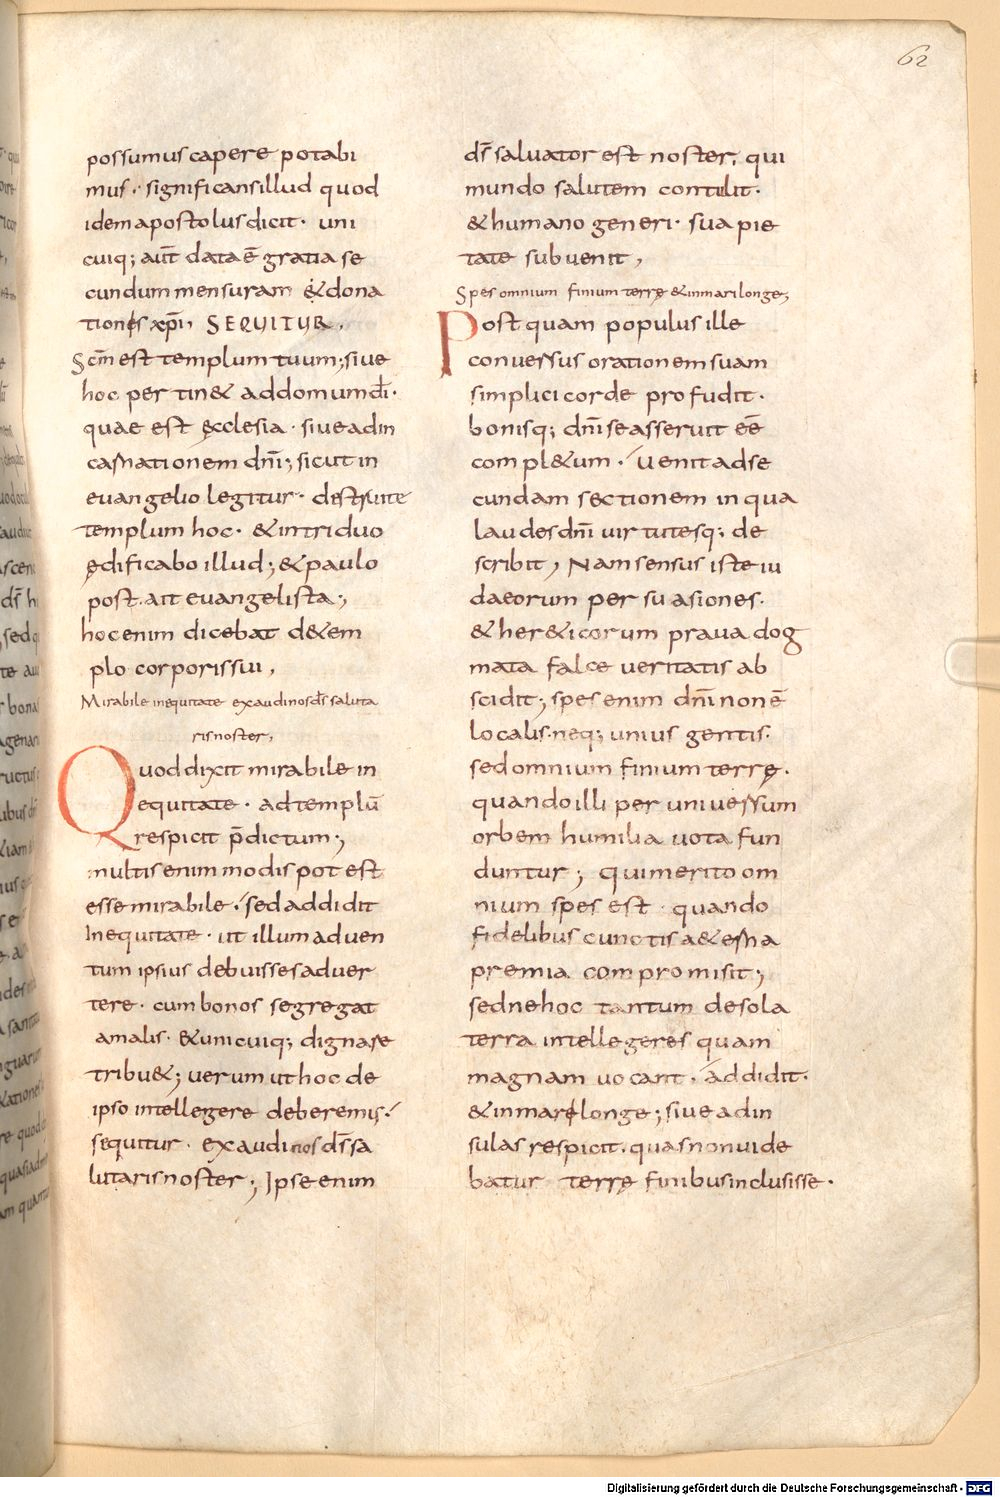 62
possumus capere potabi
mus· significans illud quod
idem apostolus dicit· uni
cuiq; aut̄ data ē gratia se
cundum mensuram & dona
tiones xp̄i, SEQUITUR,
Scm̄ est templum tuum; siue
hoc per tin& ad domum dī·
quae est ęcclesia· siue ad in
carnationem dn̄i; sicut in
euangelio legitur· destruite
templum hoc· & in triduo
ędificabo illud; & paulo
post. ait euangelista;
hoc enim dicebat d&em
plo corporis sui,
Mirabile in equitate exaudi nos ds̄ saluta
ris noster,
Quod dixit mirabile in
equitate· ad templū
respicit p̄dictum;
multis enim modis potest
esse mirabile· sed addidit
In equitate· ut illum aduen
tum ipsius debuisses aduer
tere· cum bonos segregat
a malis· & unicuiq; digna re
tribu&; uerum ut hoc de
ipso intellegere deberemus·
sequitur· exaudi nos ds̄ sa
lutaris noster; Ipse enim
ds̄ saluator est noster, qui
mundo salutem contulit·
& humano generi· sua pie
tate subuenit,
Spes omnium finium terrę & in mari longe;
Post quam populus ille
conuersus orationem suam
simplici corde profudit·
bonisq; dn̄i se asseruit eē
compl&um· Uenit ad se
cundam sectionem in qua
laudes dn̄i uirtutesq; de
scribit, Nam sensus iste iu
daeorum persuasiones·
& her&icorum praua dog
mata falce ueritatis ab
scidit; spes enim dn̄i non ē
localis· neq; unius gentis·
sed omnium finium terrę·
quando illi per uniuersum
orbem humilia uota fun
duntur; qui merito om
nium spes est· quando
fidelibus cunctis a&erna
premia compromisit;
sed ne hoc tantum de sola
terra intellegeres quam
magnam uocant· addidit·
& in mari longe; siue ad in
sulas respicit. quas non uide
batur terrę finibus inclusisse·
Digitalisierung gefördert durch die Deutsche Forschungsgemeinschaft - DFG